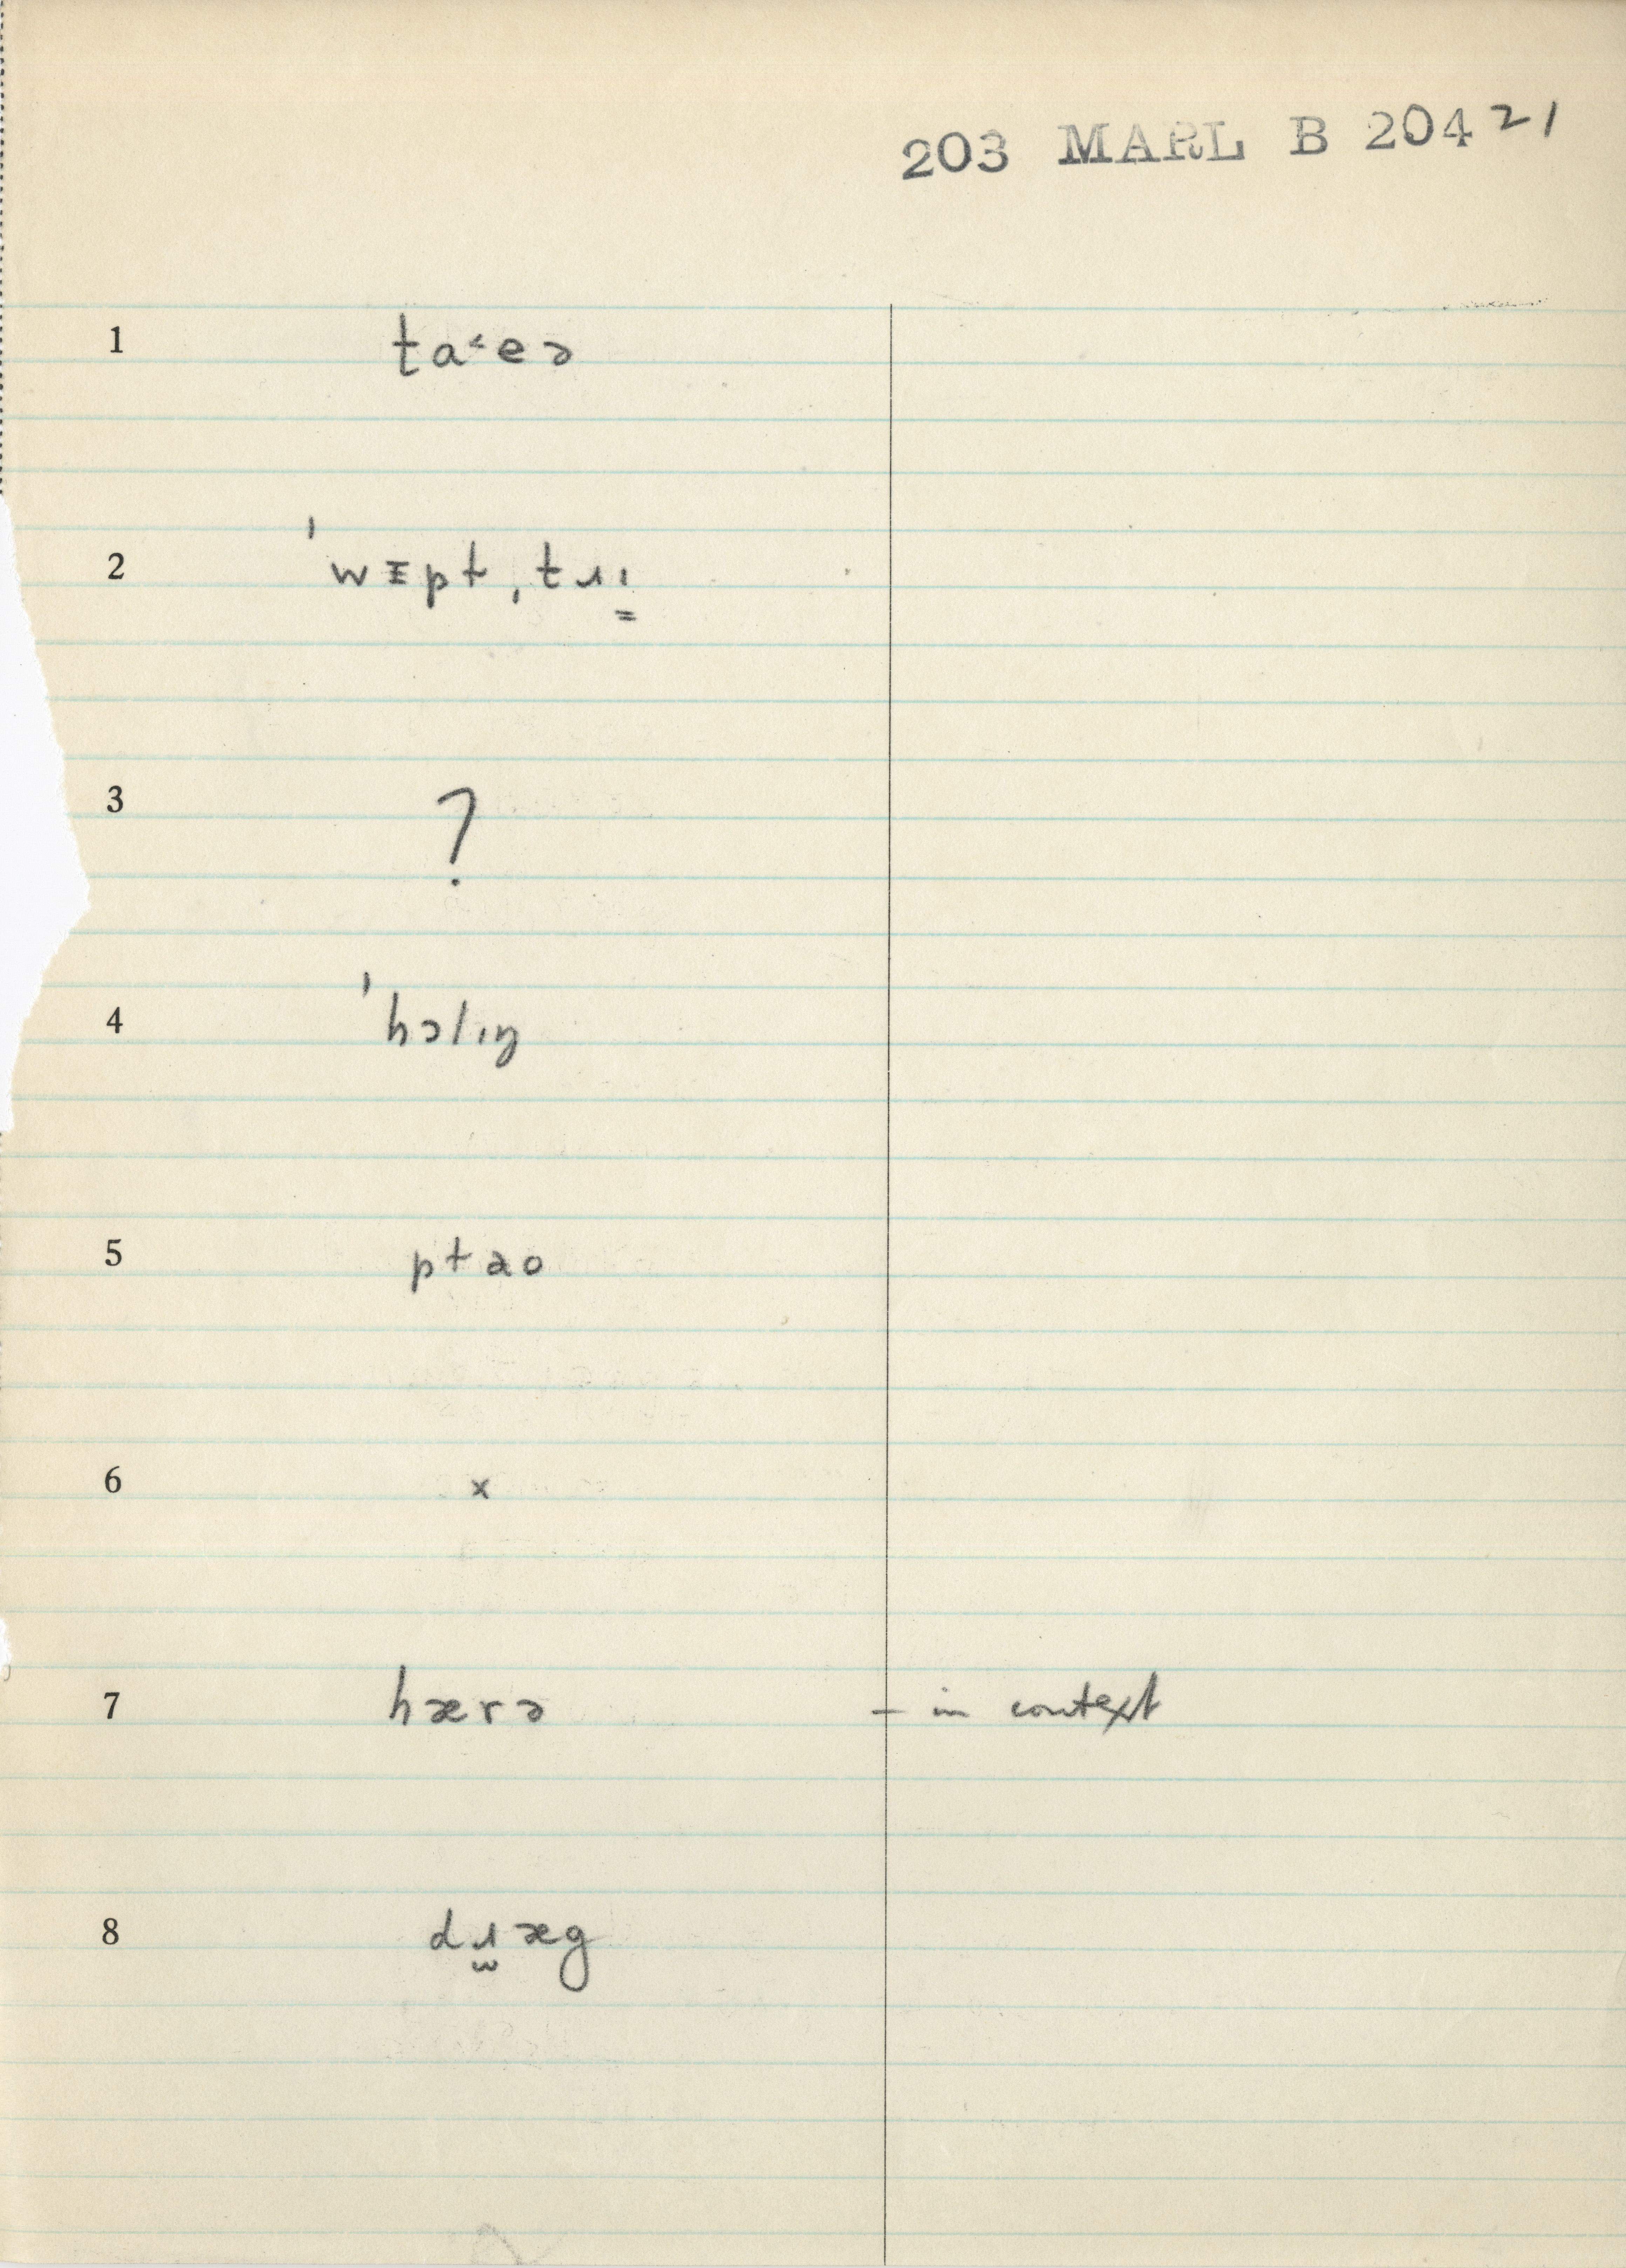 203 MARL B 204 21
1 ta˂eə
2 ˈwɪpt ˌtɹı̳
3 ?
4 ˈhɔlıŋ
5 ptao
6 x
7 hærə – in context
8 dɹ̫æg